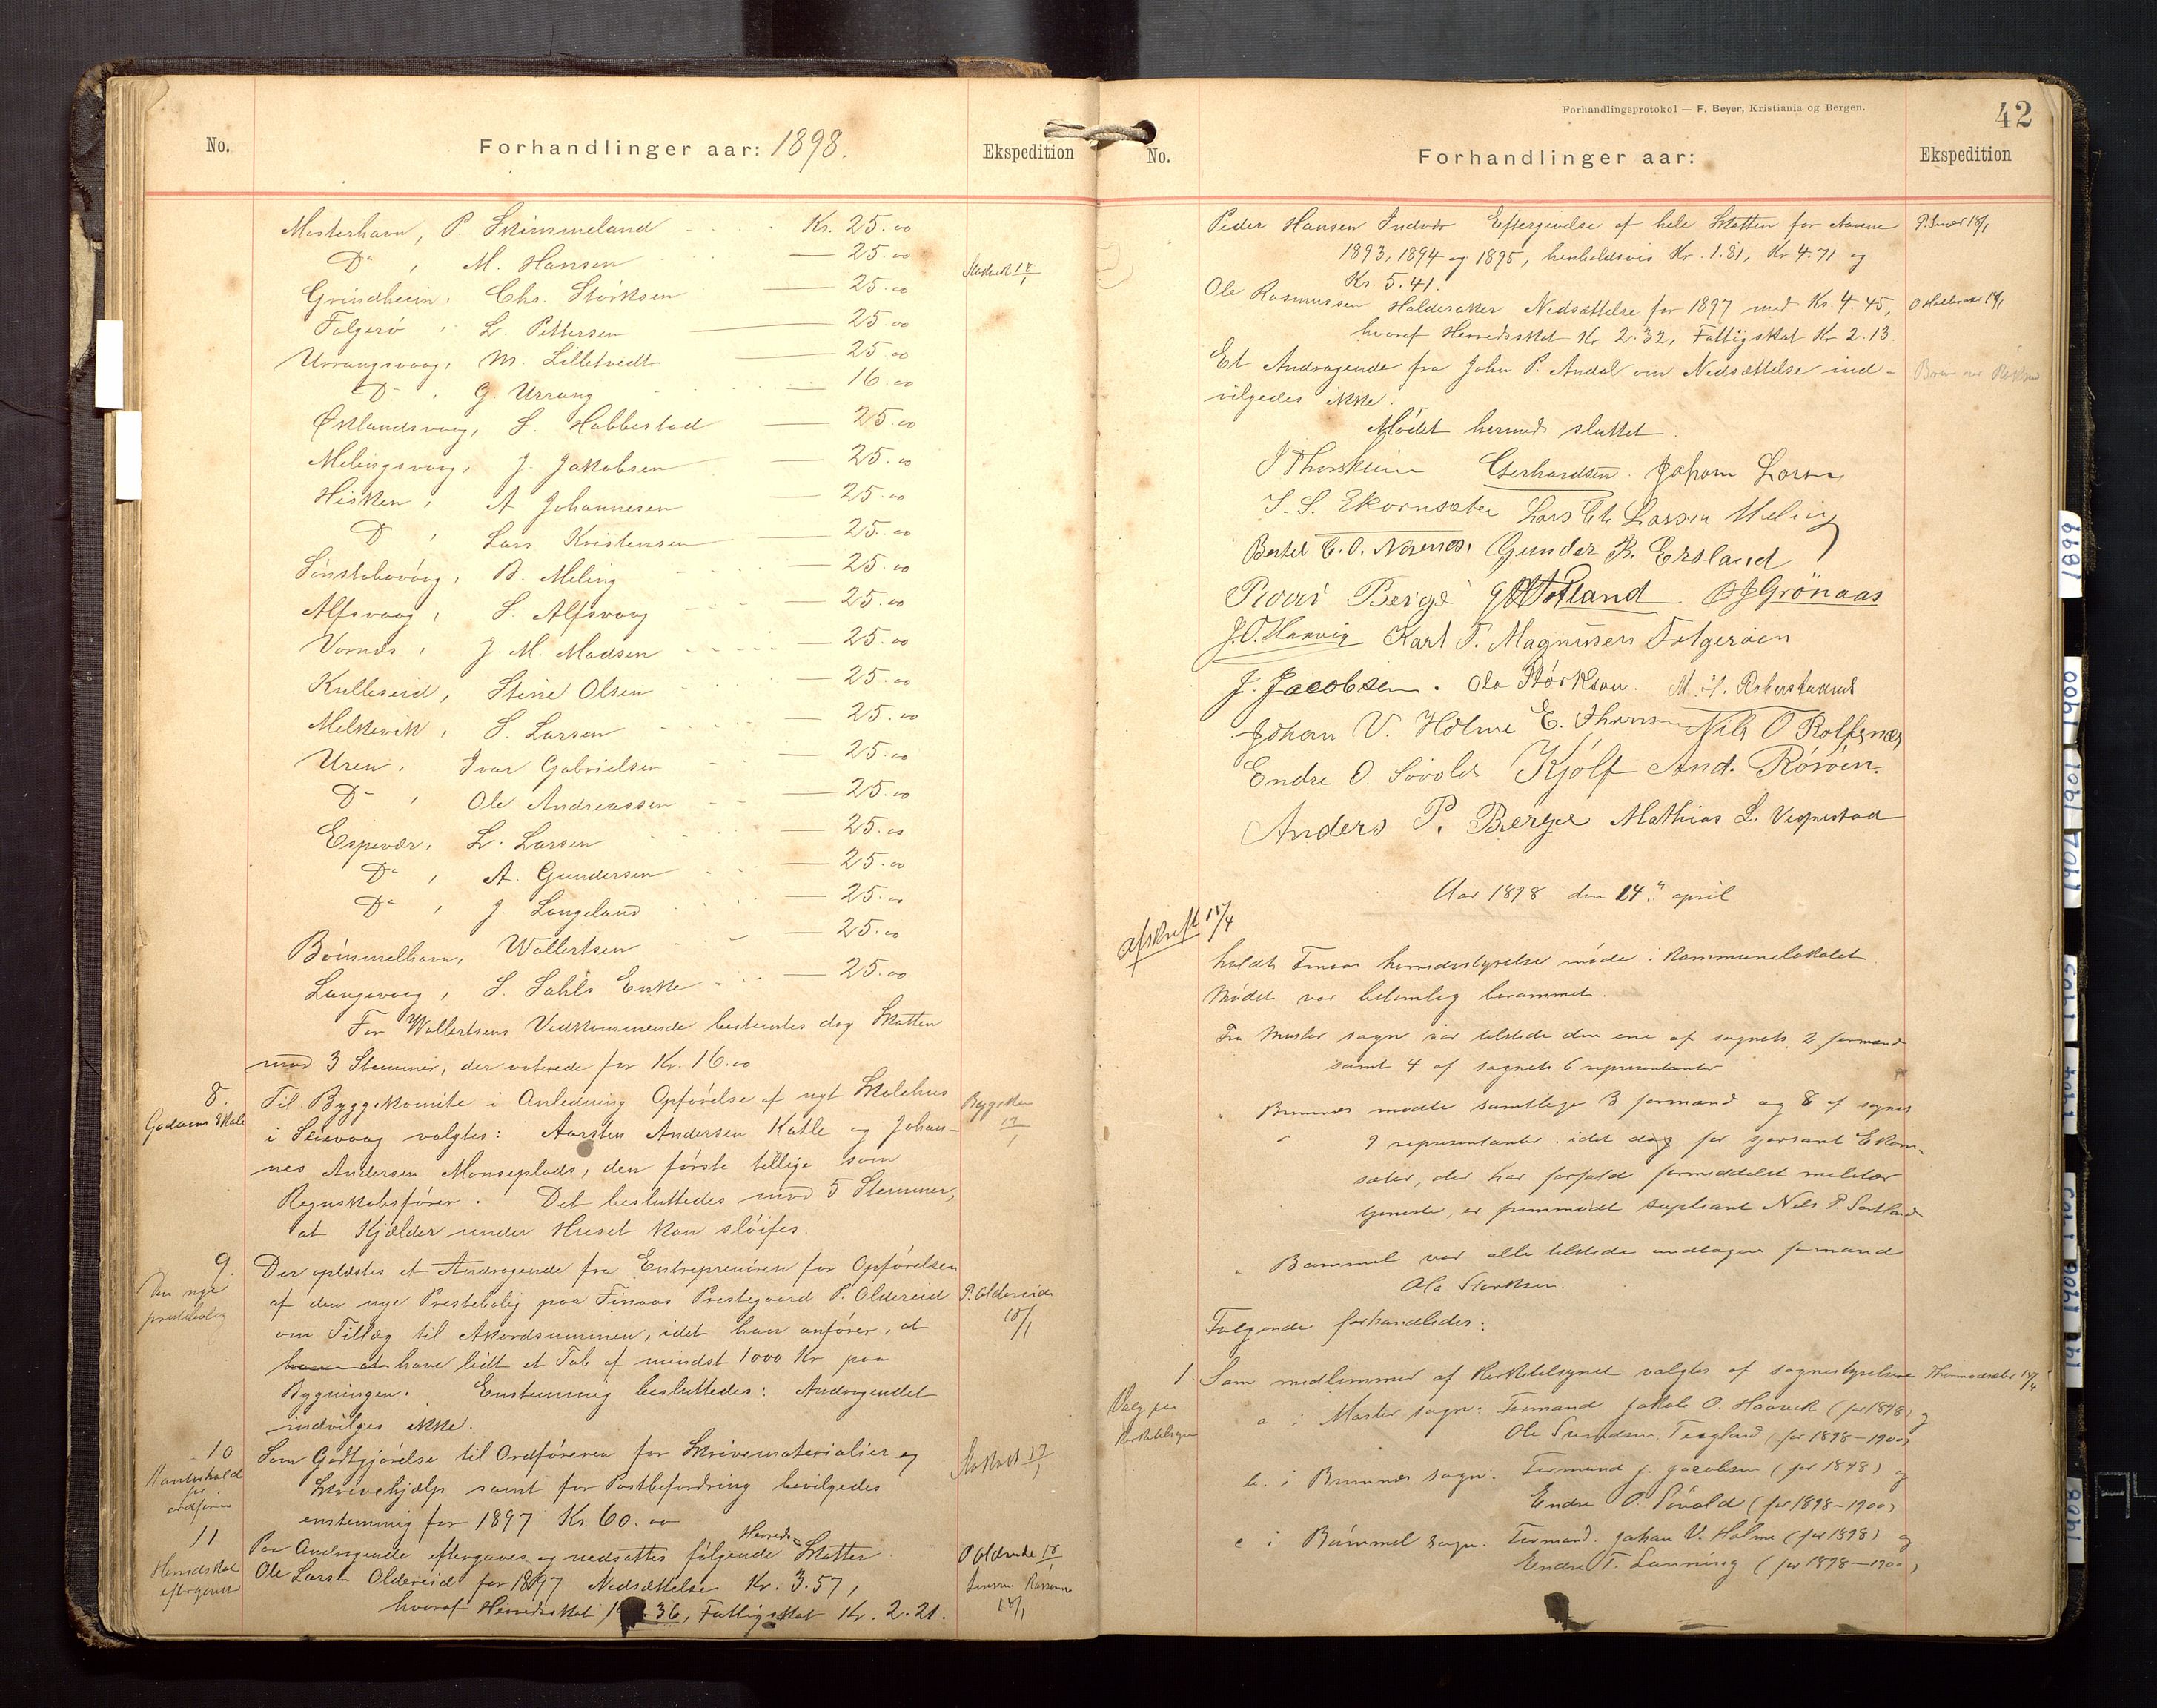 No.
Forhandlinger aar: 1898.
Ekspedition
Mosterhavn, P. Skimmeland Kr. 25.00
Do , M. Hansen — 25.00
Grindheim, Chr. Størksen — 25.00
Folgerø , L. Pettersen — 25.00
Urrangsvaag, M. Lilletvedt — 25.00
Do , G. Urrang — 16.00
Østlandsvaag, S. Habbestad — 25.00
Melingsvaag, J. Jakobsen — 25.00
Hisken, A Johannesen — 25.00
D , Lars Kristensen — 25.00
Sønstabøvaag, B. Meling — 25.00
Alfsvaag, S. Alfsvaag — 25.00
Vornes, J. M. Madsen — 25.00
Kulleseid, Stine Olsen — 25.00
Melkevik, S. Larsen — 25.00
Uren, Ivar Gabrielsen — 25.00
Do , Ole Andreassen — 25.00
Espevær, L. Larsen — 25.00
Do , A. Gundersen — 25.00
Do , J. Langeland — 25.00
Bømmelhavn, Wallertsen — 25.00
Langevaag, S. Sahls Enke — 25.00
For Wallertsens Vedkommende bestemtes dog Skatten
mod 3 Stemmer, der voterede for Kr. 16.00
8. Til Byggekomite i Anledning Opførelse af nyt Skolehus
i Seievaag valgtes: Aarsten Andersen Katle og Johan-
nes Andersen Monseplads, den første tillige som
Regnskabsfører. Det besluttedes mod 5 Stemmer,
at Kjælder under Huset kan sløifes.
9. Der oplæstes et Andragende fra Entreprenøren for Opførelsen
Den nye
præstebolig
af den nye Prestebolig paa Finaas Prestegaard P. Oldereid
P. Oldereide 18/1
om Tillæg til Akordsummen, idet han anfører, at
have lidt et Tab af mindst 1000 Kr paa
Bygningen. Enstemmig besluttedes: Andragendet
indvilges ikke.
10 Som Godtgjørelse til Ordføreren for Skrivematerialier og
Skrivehjælp samt for Postbefordring bevilgedes
enstemmig for 1897 Kr. 60.00
11 Paa Andragende eftergaves og nedsattes følgende Herreds-Skatter
Herredsskat
eftergivet
Ole Larsen Oldereid for 1897 Nedsættelse Kr. 3.57,
hvoraf Herredsskat .36, Fattigskat Kr. 2.21.
Forhandlingsprotokol — F. Beyer, Kristiania og Bergen.
42
No.
Forhandlinger aar:
Ekspedition
Peder Hansen Indvær Eftergivelse af hele Skatten for Aarene
1893, 1894 og 1895, henholdsvis Kr. 1.81, Kr 4.71 og
Kr. 5.41.
Ole Rasmussen Halderaker Nedsættelse for 1897 med Kr. 4.45,
hvoraf Herredsskat Kr 2.32, Fattigskat Kr 2.13.
Et Andragende fra John P. Andal om Nedsættelse ind-
vilgedes ikke.
Mødet hermed sluttet.
Gerhardsen. Johan Larsen
S. S. Ekornsæter Lars Chr Larsen Meling
Bertel C. O. Nornes. Gunder R. Ersland
Berge O J Grönaas
J. O. Hanvig Karl T. Magnussen Folgerøen
J. Jacobsen. Ola Størksen.
Johan V. Holme E. Nils O Rolfsnes
Endre O. Søvold Kjölf And. Röröen.
Anders P. Berge Mathias L. Vespestad
Aar 1898 den 14de april
afskrift 15/4
holdts Finaas herredsstyrelse møde i kommunelokalet.
Mødet var lovlig berammet.
Fra Moster sogn var tilstede den ene af sognets 2 formænd
samt 4 af sognets 6 representanter
" Bremnes mødte samtlige 3 formænd og 8 af sognets
9 representanter, idet dog for gaarsant Ekorn-
sæter, der har forfald formedelst militær
tjeneste, er fremmødt supleant Nels P.
" Bømmel var alle tilstede undtagen formand
Ola Størksen.
Følgende forhandledes:
1. Som medlemmer af Kirketilsynet valgtes af sognestyrelserne
Valg paa
Kirketilsyn
a i Moster sogn: Formand Jakob O. Haavik (for 1898) og
Ole Svendsen Teigland (for 1898–1900)
b. i Bremnes sogn: Formand J. Jacobsen (for 1898) og
Endre O. Søvold (for 1898–1900)
c i Bømmel sogn. Formand. Johan V. Holme (for 1898) og
Endre T. Lønning (for 1898–1900)
1899
1900
1901
1902
1903
1904
1905
1906
1908